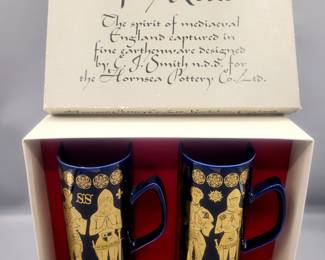 The spirit of mediaeval
England captured in
fine earthenware designed
by C. J. Smith n.d.d. for
the Hornsea Pottery Co. Ltd.
SS